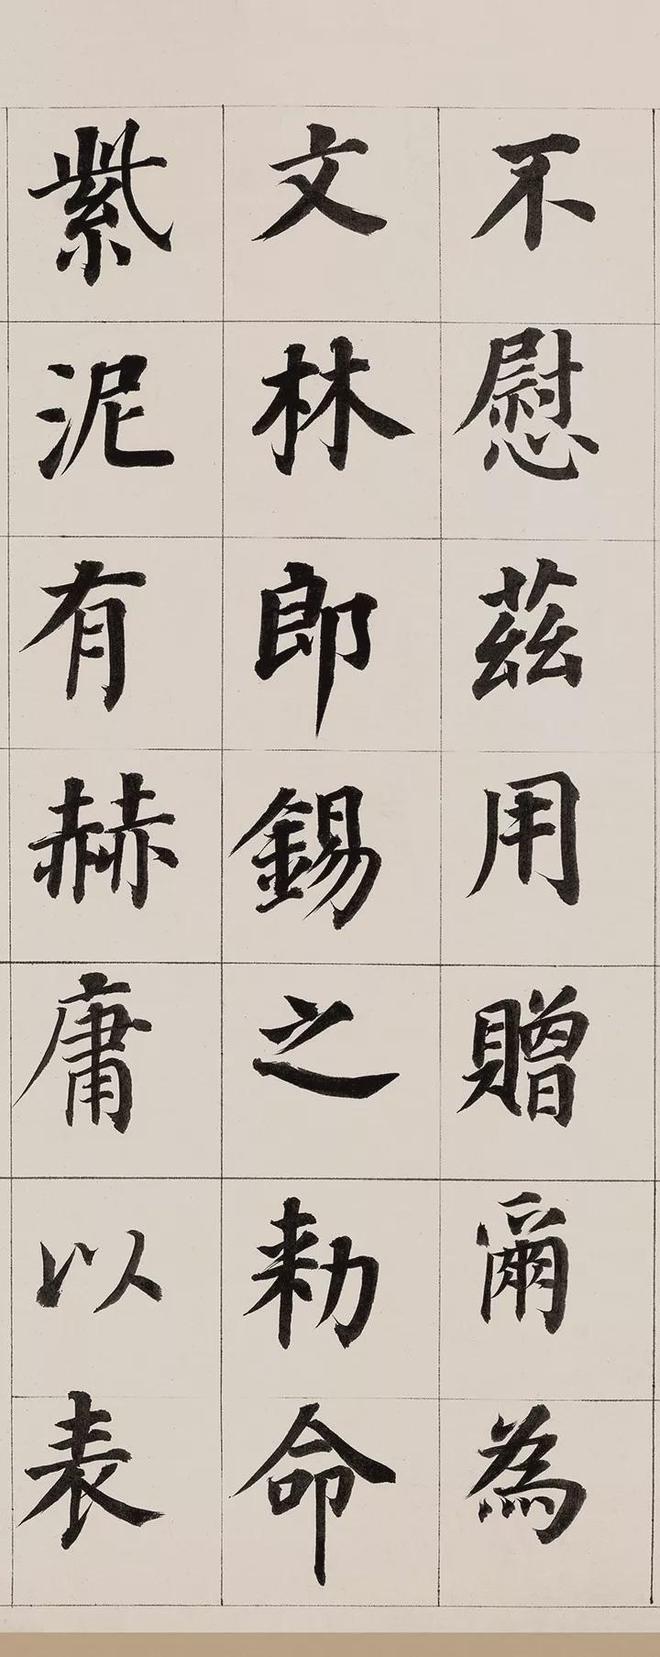 不慰茲用贈爾為
文林郎錫之勑命
紫泥有赫庸以表